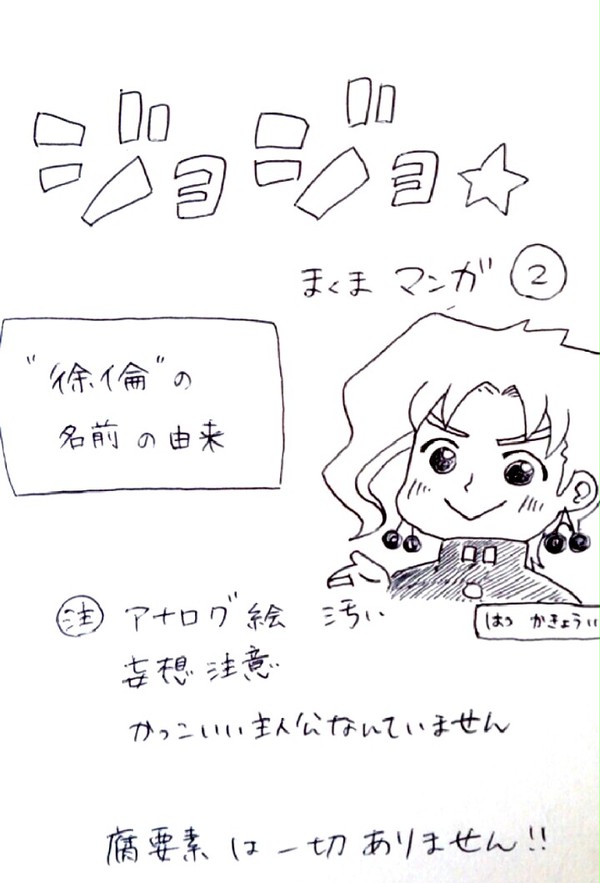 ジョジョ☆
まくま マンガ ②
"徐倫"の
名前の由来
はぅ かきょうい
㊟ アナログ絵 汚い
妄想注意
かっこいい主人公なんていません
腐要素は一切ありません!!